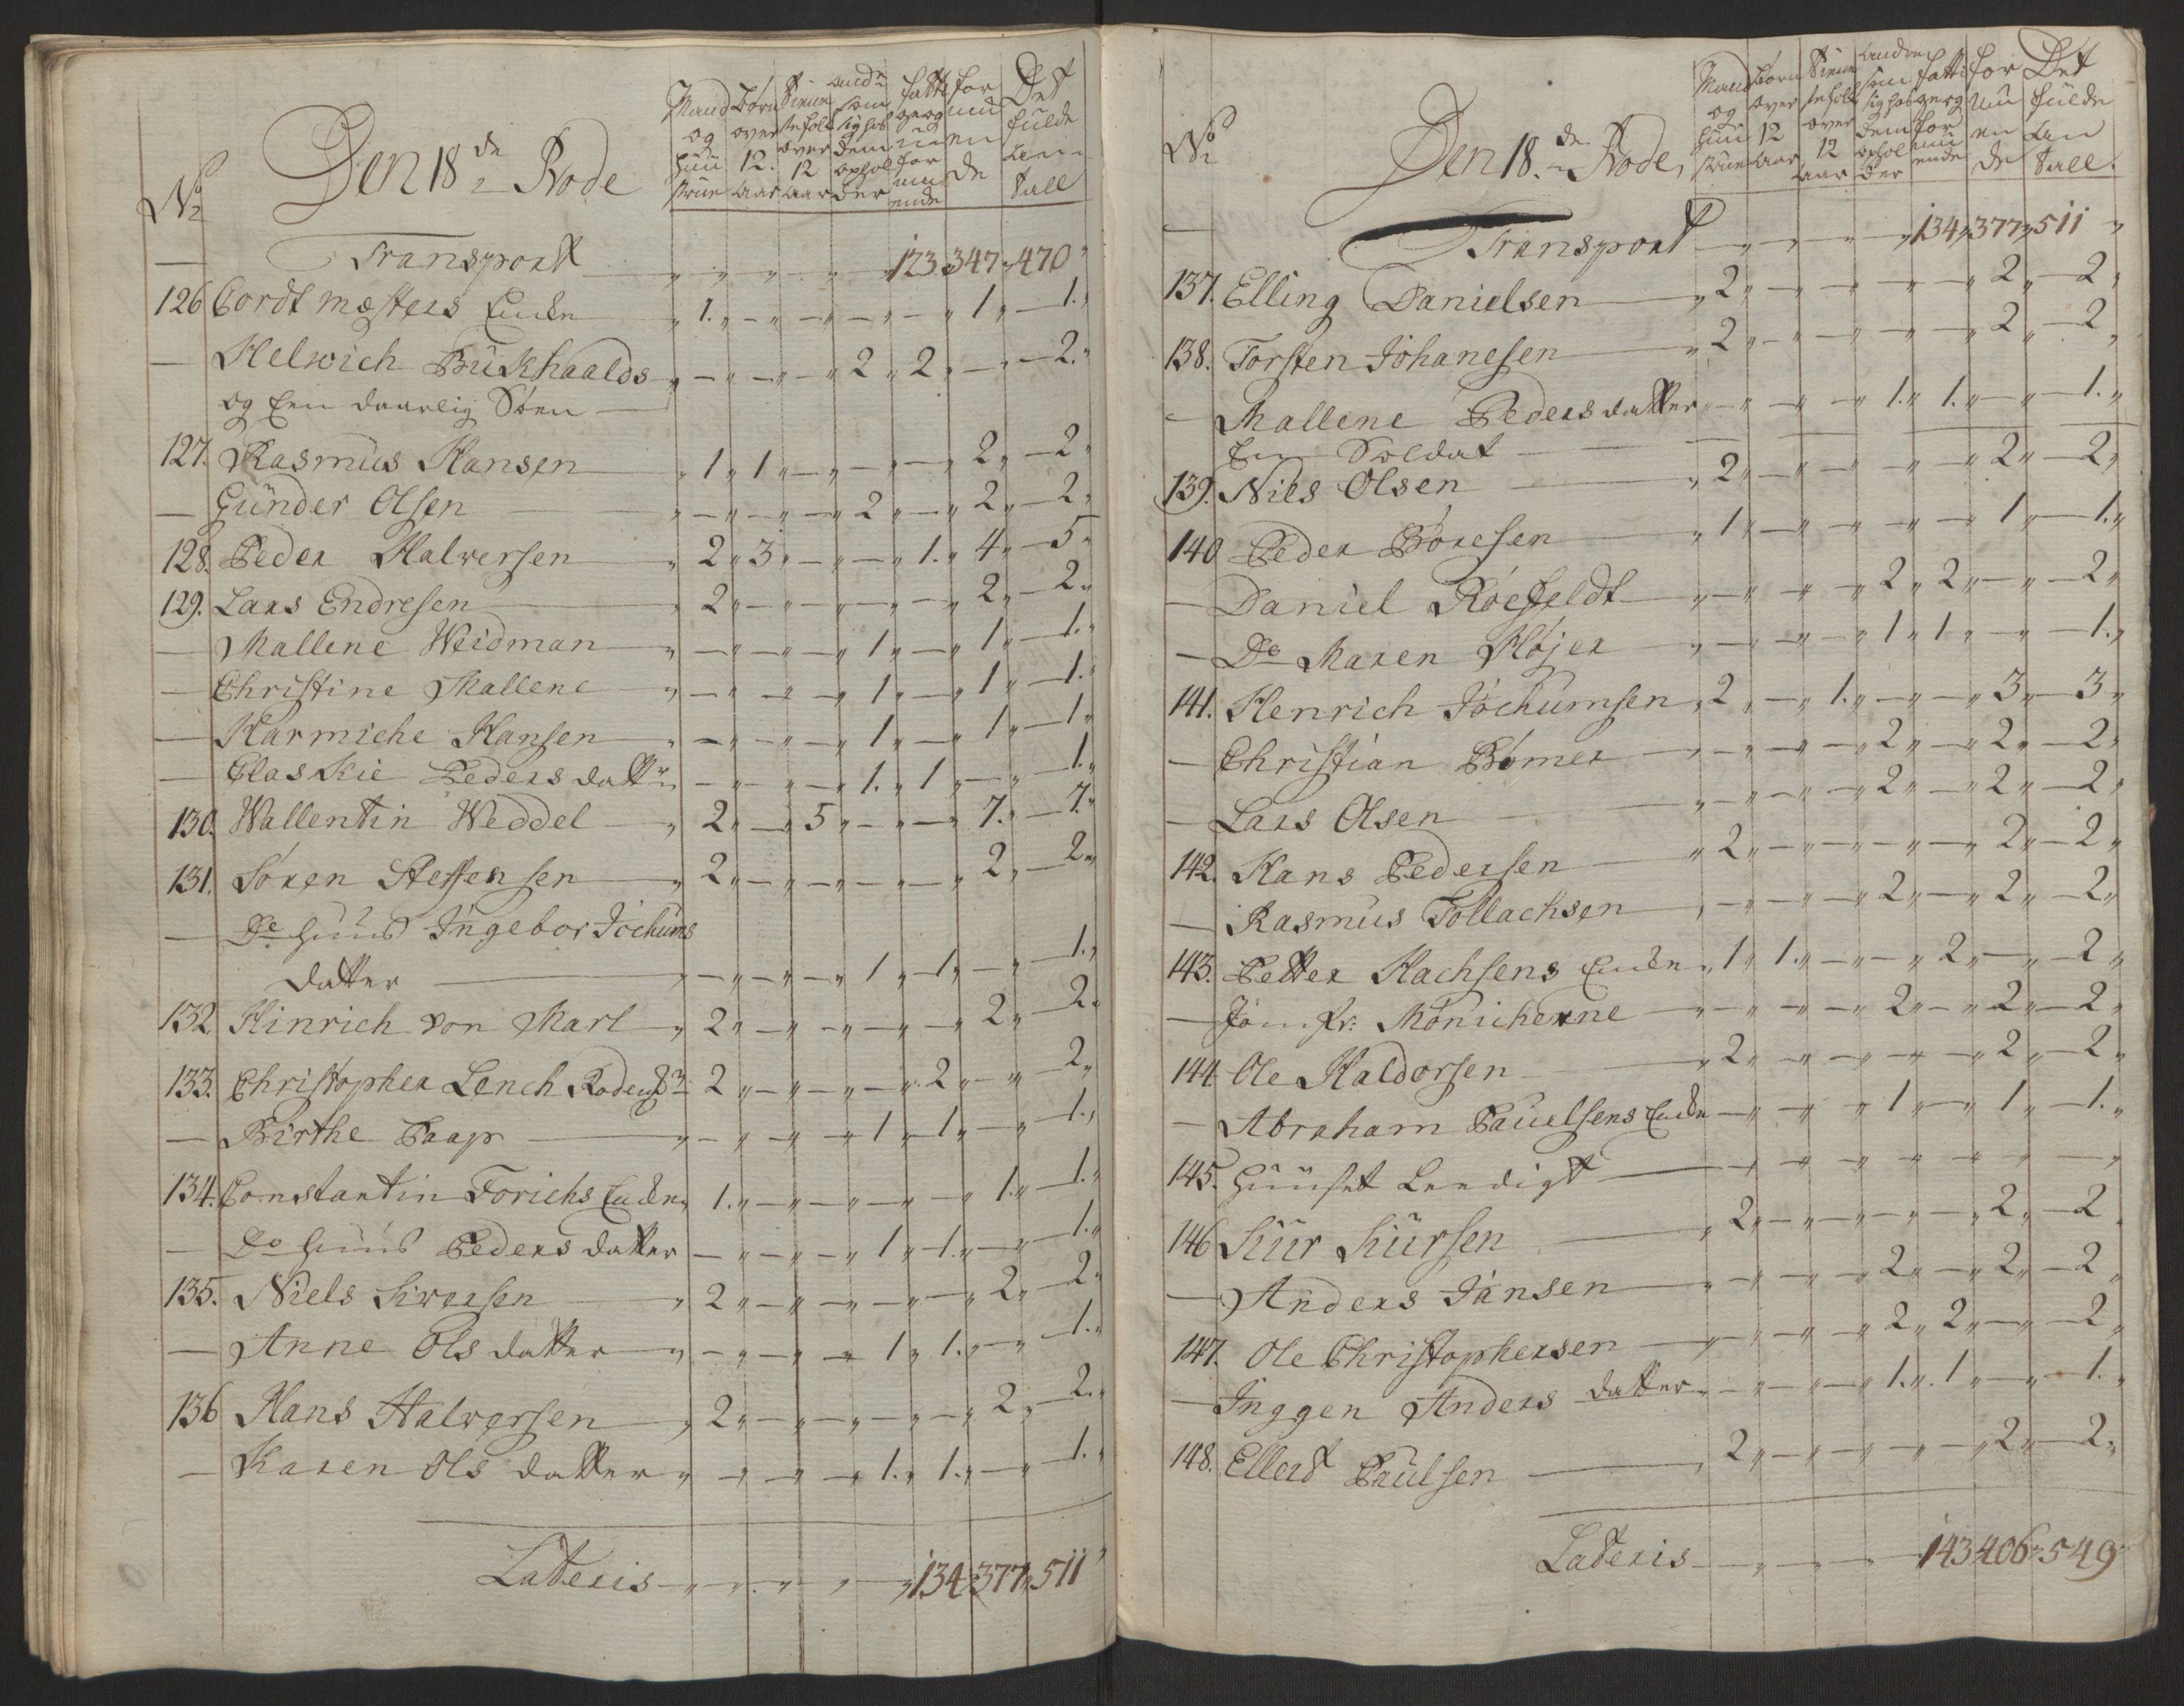 No
Den 18de Rode
Mand og Huustrue
Børn over 12. Aar
Tieneste folk over 12 Aar
andre som sig hos dem ophol der
fattige og uformuende
formuende
Det fulde Antall
Transport 123 347 470
126 Cordt Mæsters Encke 1. 1 1.
Helwich Bukhaalds 2 2 2.
og Een daarlig Søn
127. Rasmus Hansen 1 1 2 2
Gunder Olsen 2 2 2
128. Peder Halversen 2 3 1. 4 5
129. Lars Endresen 2 2 2
Mallene Weidman 1 1 1.
Christine Mallene 1 1 1.
Harmiche Hansen 1 1 1
Claskie Peders datter 1. 1 1.
130. Wallentin Weddel 2 5 7. 7.
131. Sören Steffensen 2 2 2
Do Huus Ingebor Jochums
datter 1 1 1.
132. Hinrich von Marl 2 2 2.
133. Christopher Lench Rodemstr 2 2 2
Birthe Paap 1 1 1.
134. Constantin Forichs Encke 1. 1. 1.
Do Huus Peders datter 1 1. 1.
135. Niels Siversen 2 2 2
Anne Ols datter 1 1. 1.
136 Hans Halversen 2 2 2.
Karen Ols datter 1. 1. 1.
Lateris 134 377 511
No
Den 18.de Rode
Mand og Huustrue
Børn over 12 Aar
Tiene stefolk over 12 aar
andre som sig hos dem ophol der
fattig og uformuende
formuende
Det fulde Antall.
Transport 134 377 511
137. Elling Danielsen 2 2 2
138. Torsten Johanesen 2 2 2
Mallene Pedersdatter 1. 1. 1.
En Soldat
139. Niels Olsen 2 2 2
140 Peder Böresen 1 1 1.
Daniel Röefeldt 2 2 2
Do Maren Höjer 1 1 1.
141. Henrich Jochumsen 2 1. 3 3
Christian Bömer 2 2 2
Lars Olsen 2 2 2
142. Hans Pedersen 2 2 2
Rasmus Tollachsen 2 2 2
143. Petter Hachsens Encke 1 1. 2 2
Jomfr: Mönickerne 2 2 2
144. Ole Haldorsen 2 2 2
Abraham Pauelsens Encke 1 1 1.
145. Huuset Leedigt
146 Siur Siursen 2 2 2
Anders Jansen 2 2 2
147. Ole Christophersen 2 2 2
Inggen Anders datter 1. 1 1.
148. Ellert Paulsen 2 2 2
Lateris 143 406 549